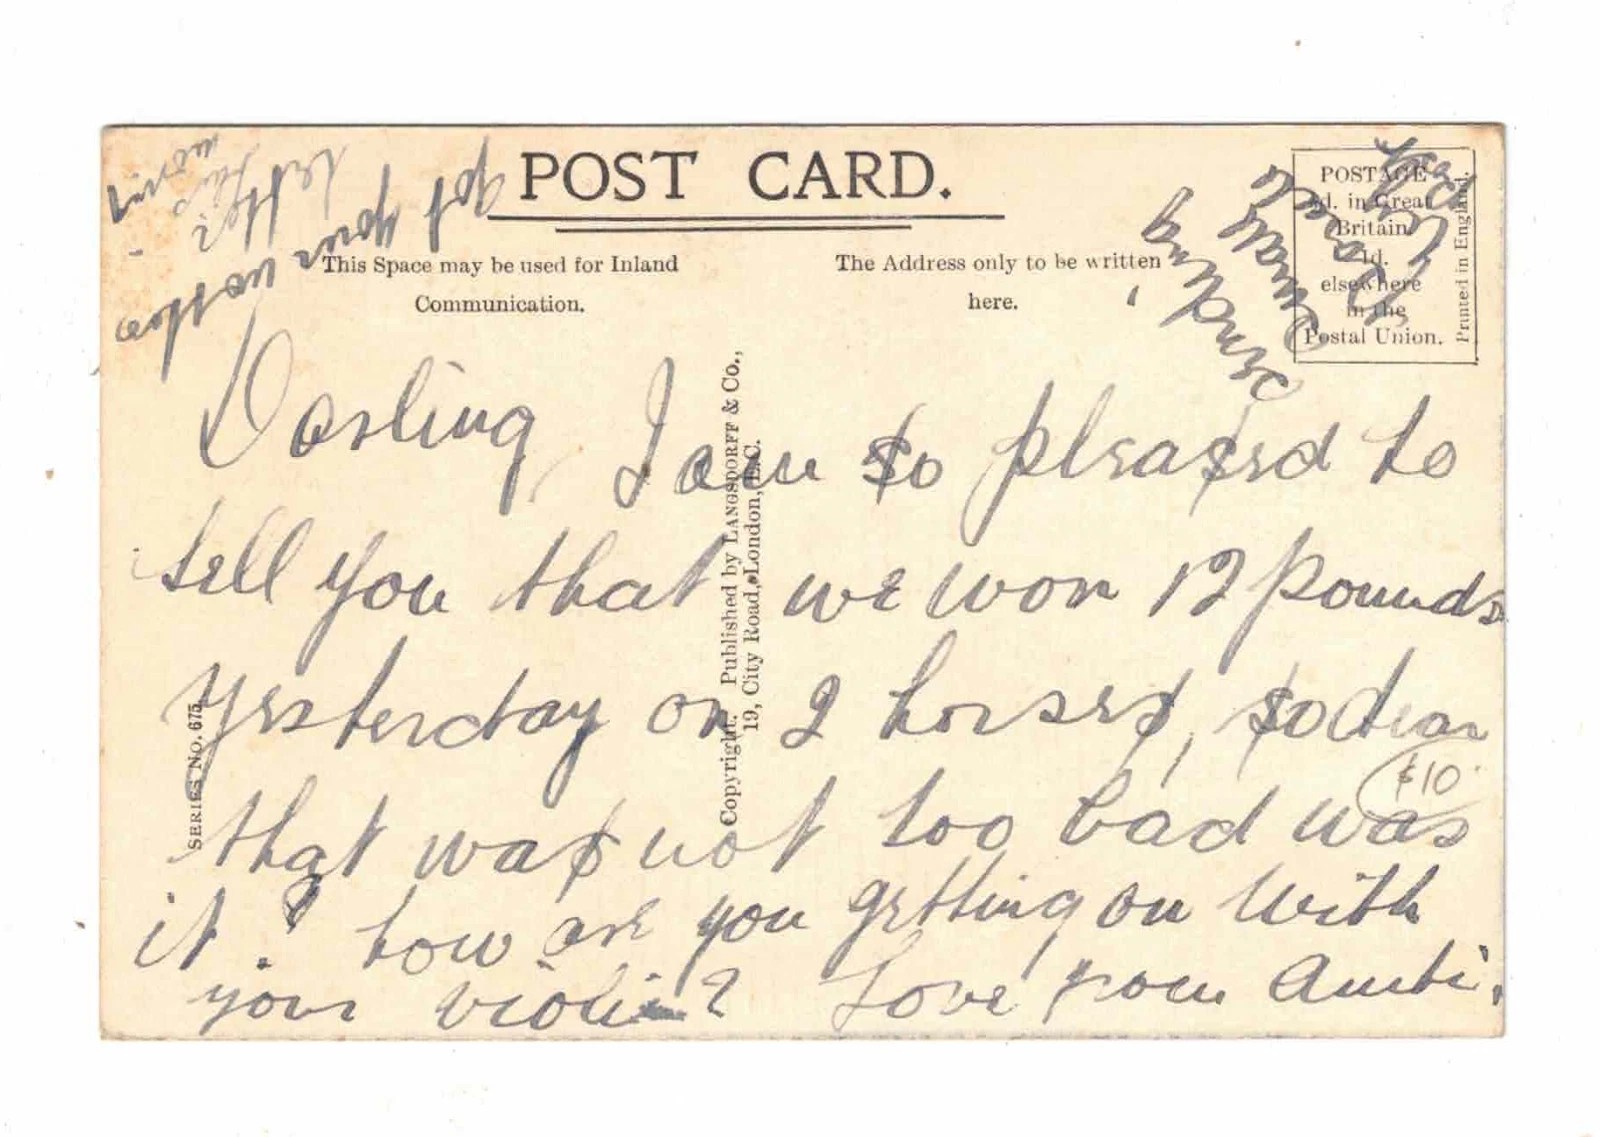 POST CARD.
This Space may be used for Inland
Communication.
The Address only to be written
here.
POSTAGE
½d. in Great
Britain
1d.
elsewhere
in the
Postal Union.
Printed in England.
got your
mother
let
this
morning
sending
away
Darling, I am so pleased to
tell you that we won 12 pounds
yesterday on 2 horses, so dear
$10
that was not too bad was
it? how are you getting on with
your violin? Love from Aunti.
SERIES NO. 675.
Copyright. Published by LANGSDORFF & Co.,
19, City Road, London, E.C.